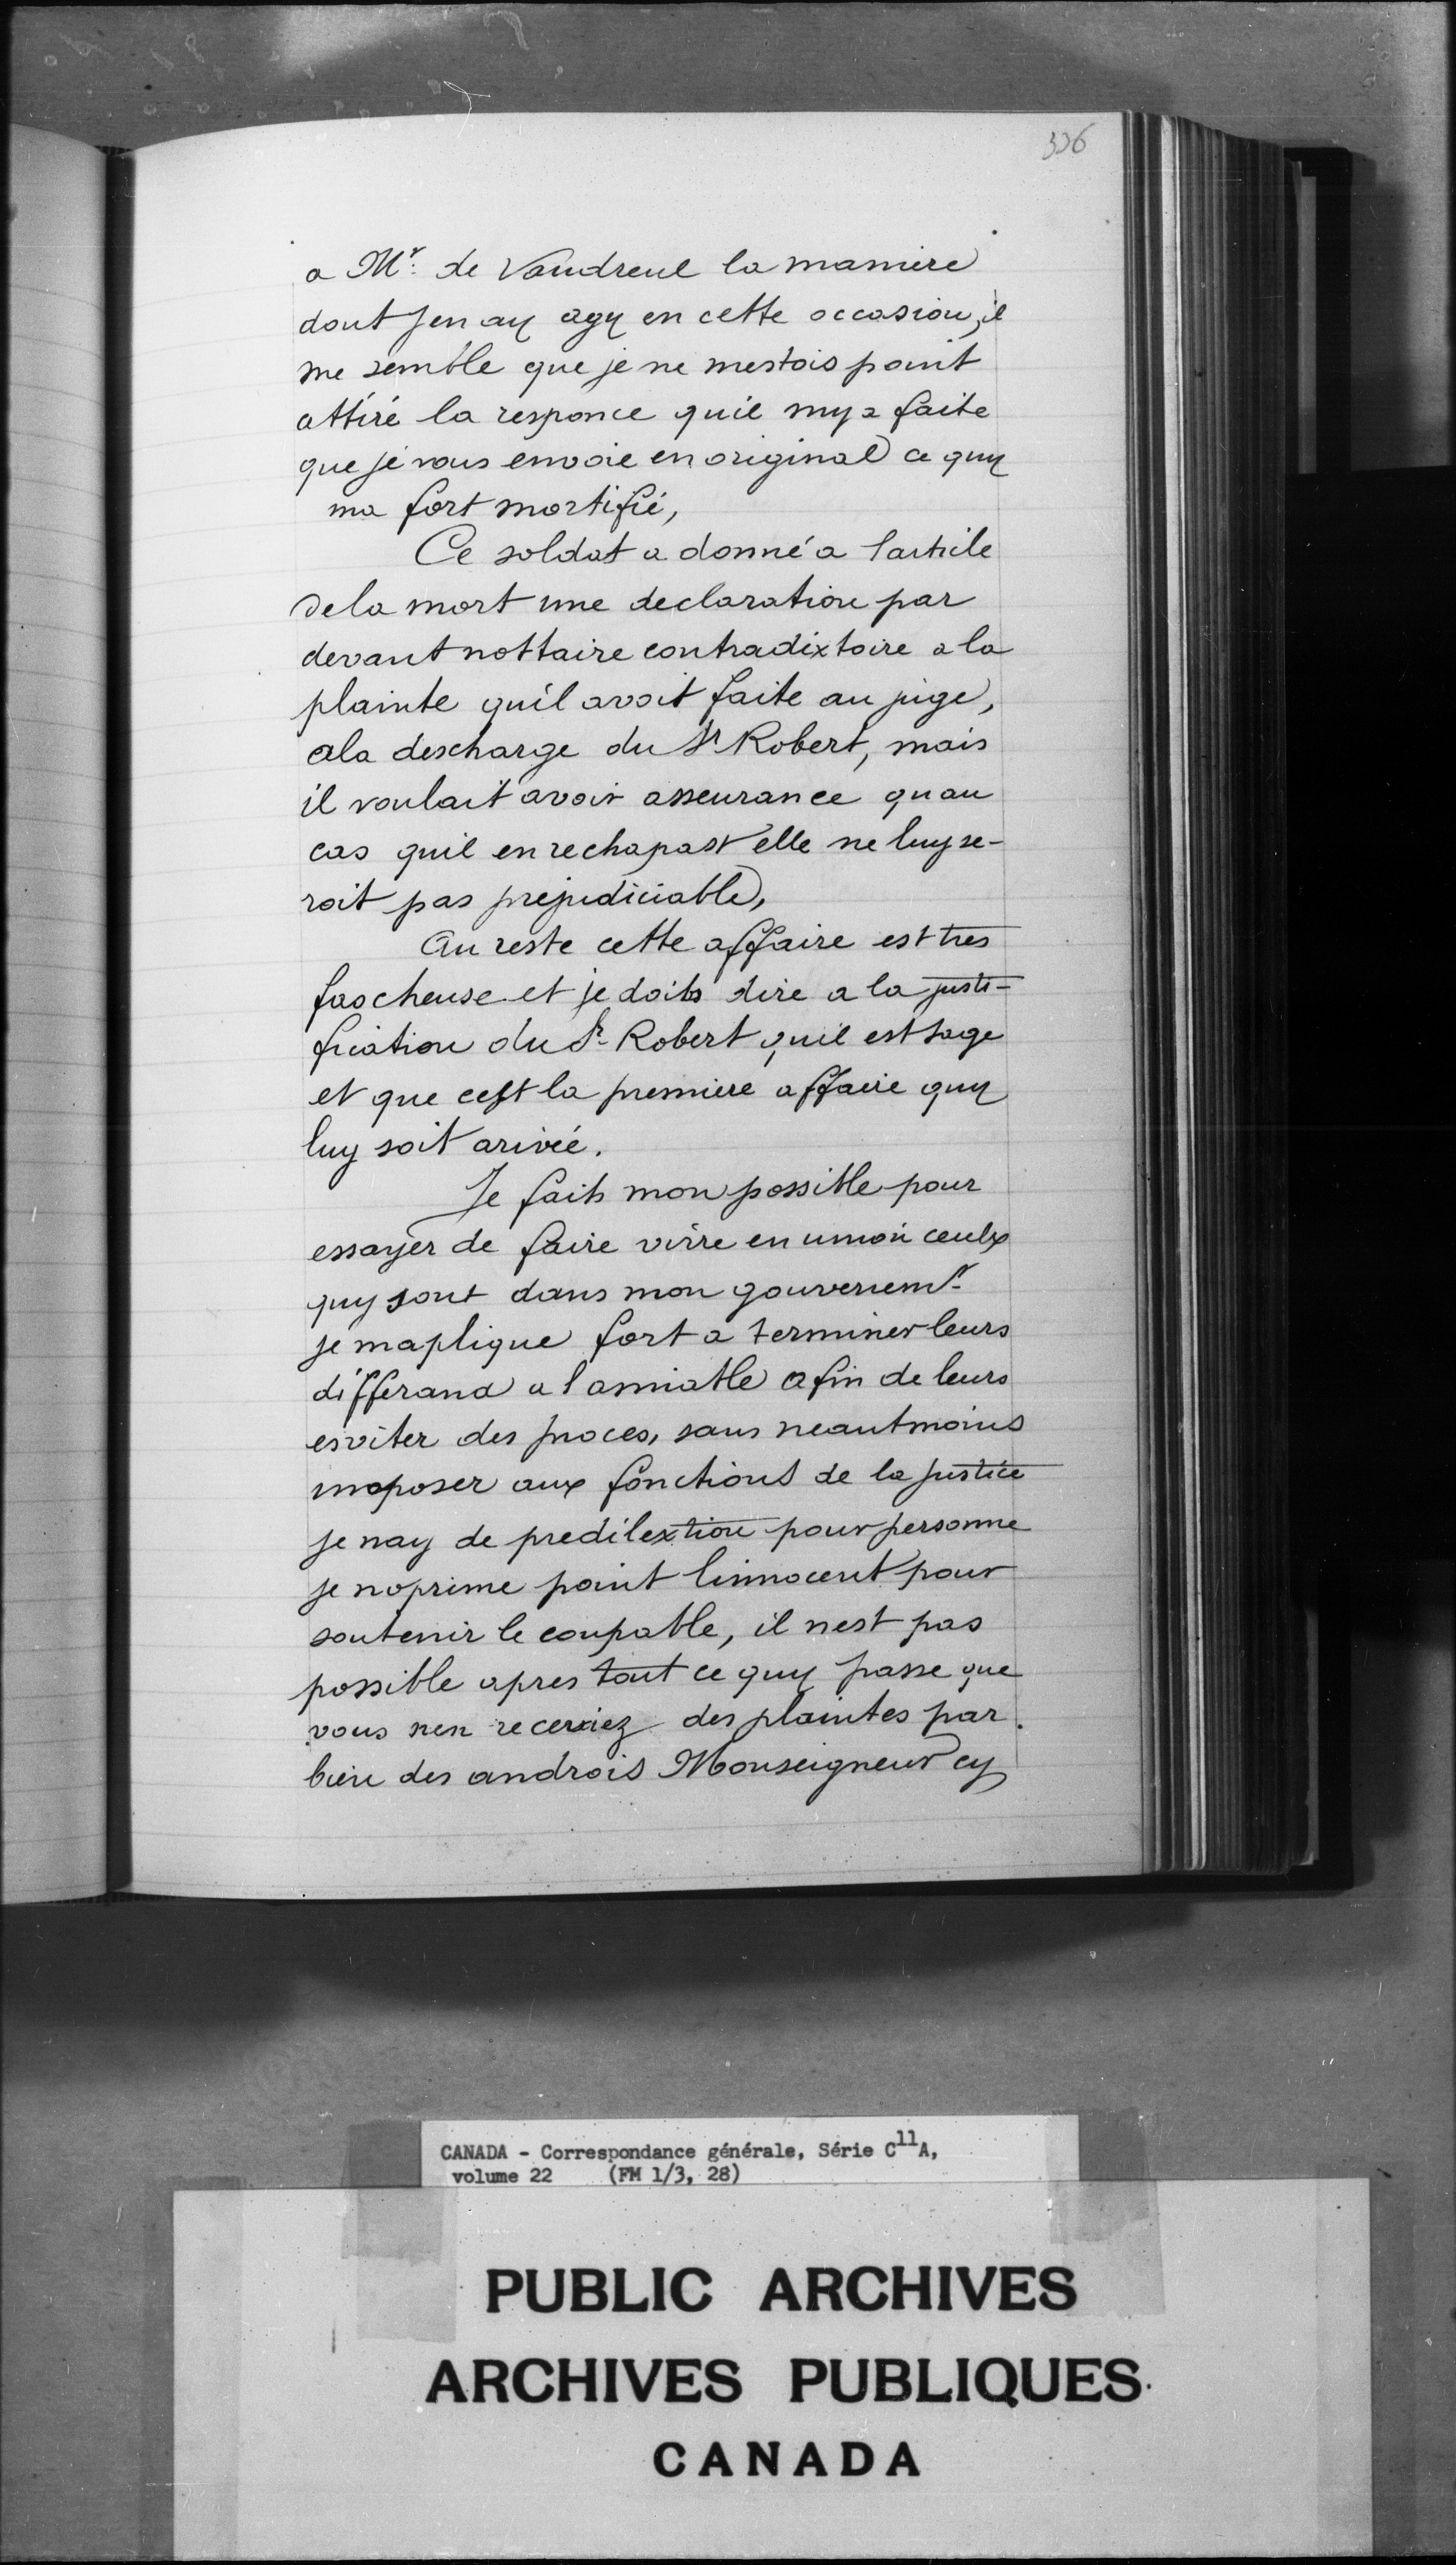 336
a Mr. de Vaudreul la maniere
dont jen ay agy en cette occasion, il
me semble que je ne mestois point
attiré la responce quil my a faite
que je vous envoie en original ce quy
ma fort mortifié,
Ce soldat a donné a larticle
de la mort une declaration par
devant nottaire contradixtoire a la
plainte qu'il avoit faite au juge,
ala descharge du Sr Robert, mais
il voulait avoir asseurance quau
cas quil en rechapast elle ne luy se-
roit pas prejudiciable,
Au reste cette affaire est tres
fascheuse et je doits dire a la justi-
fication du Sr Robert quil est sage
et que cest la premiere affaire quy
luy soit arivée.
Je faits mon possible pour
essayer de faire vivre en union ceulx
quy sont dans mon gouvernemt
je maplique fort a terminer leurs
differand a lamiable afin de leurs
esviter des proces, sans neantmoins
moposer aux fonctions de la justice
je nay de predilextion pour personne
je noprime point linnocent pour
soutenir le coupable, il nest pas
possible apres tout ce quy passe que
vous nen receviez des plaintes par
bien des androis Monseigneur cy
CANADA - Correspondance générale, Série C11A,
volume 22 (FM 1/3, 28)
PUBLIC ARCHIVES
ARCHIVES PUBLIQUES
CANADA